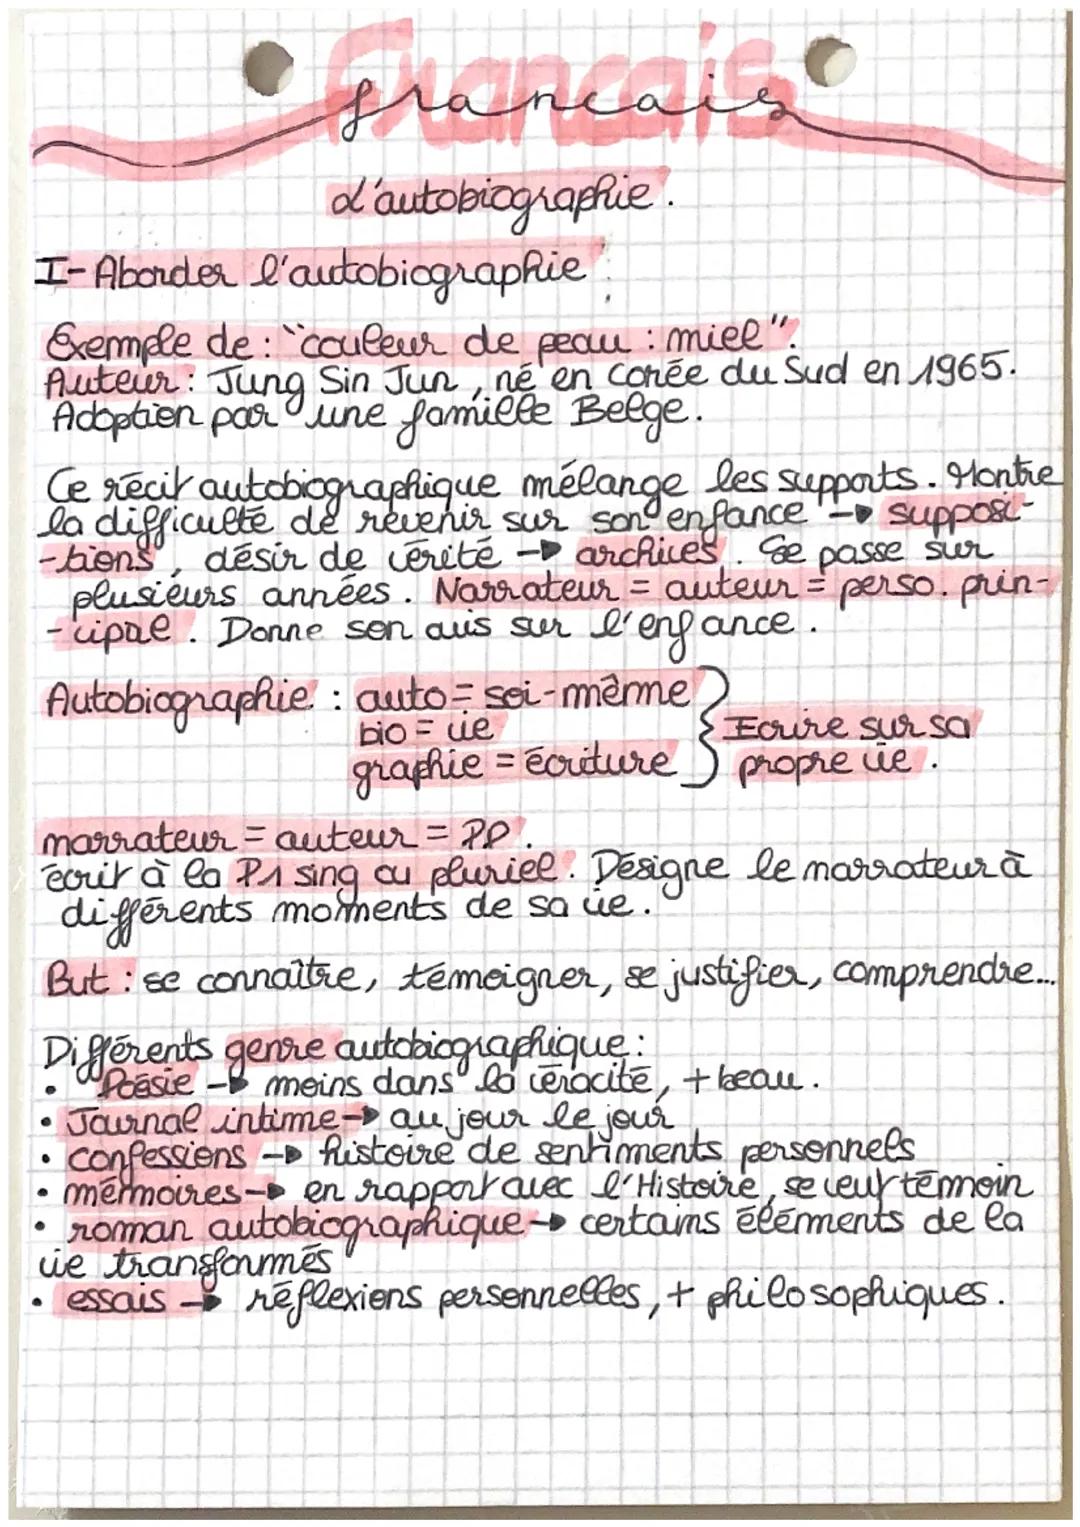 Francais
francais
L'autobiographie.
I- Aborder l'autobiographie :
Exemple de : "couleur de peau : miel".
Auteur : Jung Sin Jun, né en Corée du Sud en 1965.
Adoption par une famille Belge.
Ce récit autobiographique mélange les supports. Montre
la difficulté de revenir sur son enfance → supposi-
-tions, désir de vérité → archives. Se passe sur
plusieurs années. Narrateur = auteur = perso. prin-
-cipal. Donne son avis sur l'enfance.
Autobiographie : auto = soi-même
bio = vie
graphie = écriture
Ecrire sur sa
propre vie.
narrateur = auteur = PP.
écrit à la P1 sing ou pluriel. Désigne le narrateur à
différents moments de sa vie.
But : se connaître, témoigner, se justifier, comprendre...
Différents genre autobiographique :
• Poésie → moins dans la véracité, + beau.
• Journal intime → au jour le jour
• confessions → histoire de sentiments personnels
• mémoires → en rapport avec l'Histoire, se veut témoin
• roman autobiographique → certains éléments de la
vie transformés
• essais → réflexions personnelles, + philosophiques.